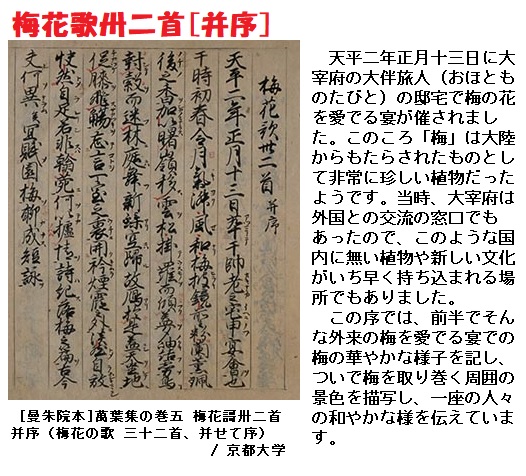 梅花歌卅二首[并序]
梅花歌卅二首 并序
天平二年正月十三日萃于帥老之宅申宴會也
于時初春令月氣淑風和梅披鏡前之粉蘭薫珮
後之香加以曙嶺移雲松掛羅而傾盖夕岫結霧鳥
封縠而迷林庭舞新蝶空歸故鴈於是盖天坐地
促膝飛觴忘言一室之裏開衿煙霞之外淡然自放
快然自足若非翰苑何以攄情詩紀落梅之篇古今
夫何異矣宜賦園梅聊成短詠
[曼朱院本]萬葉集の巻五 梅花謌卅二首
并序（梅花の歌 三十二首、并せて序）
/ 京都大学
天平二年正月十三日に大
宰府の大伴旅人（おほとも
のたびと）の邸宅で梅の花
を愛でる宴が催されまし
た。このころ「梅」は大陸
からもたらされたものとし
て非常に珍しい植物だった
ようです。当時、大宰府は
外国との交流の窓口でも
あったので、このような国
内に無い植物や新しい文化
がいち早く持ち込まれる場
所でもありました。
この序では、前半でそん
な外来の梅を愛でる宴での
梅の華やかな様子を記し、
ついで梅を取り巻く周囲の
景色を描写し、一座の人々
の和やかな様を伝えていま
す。